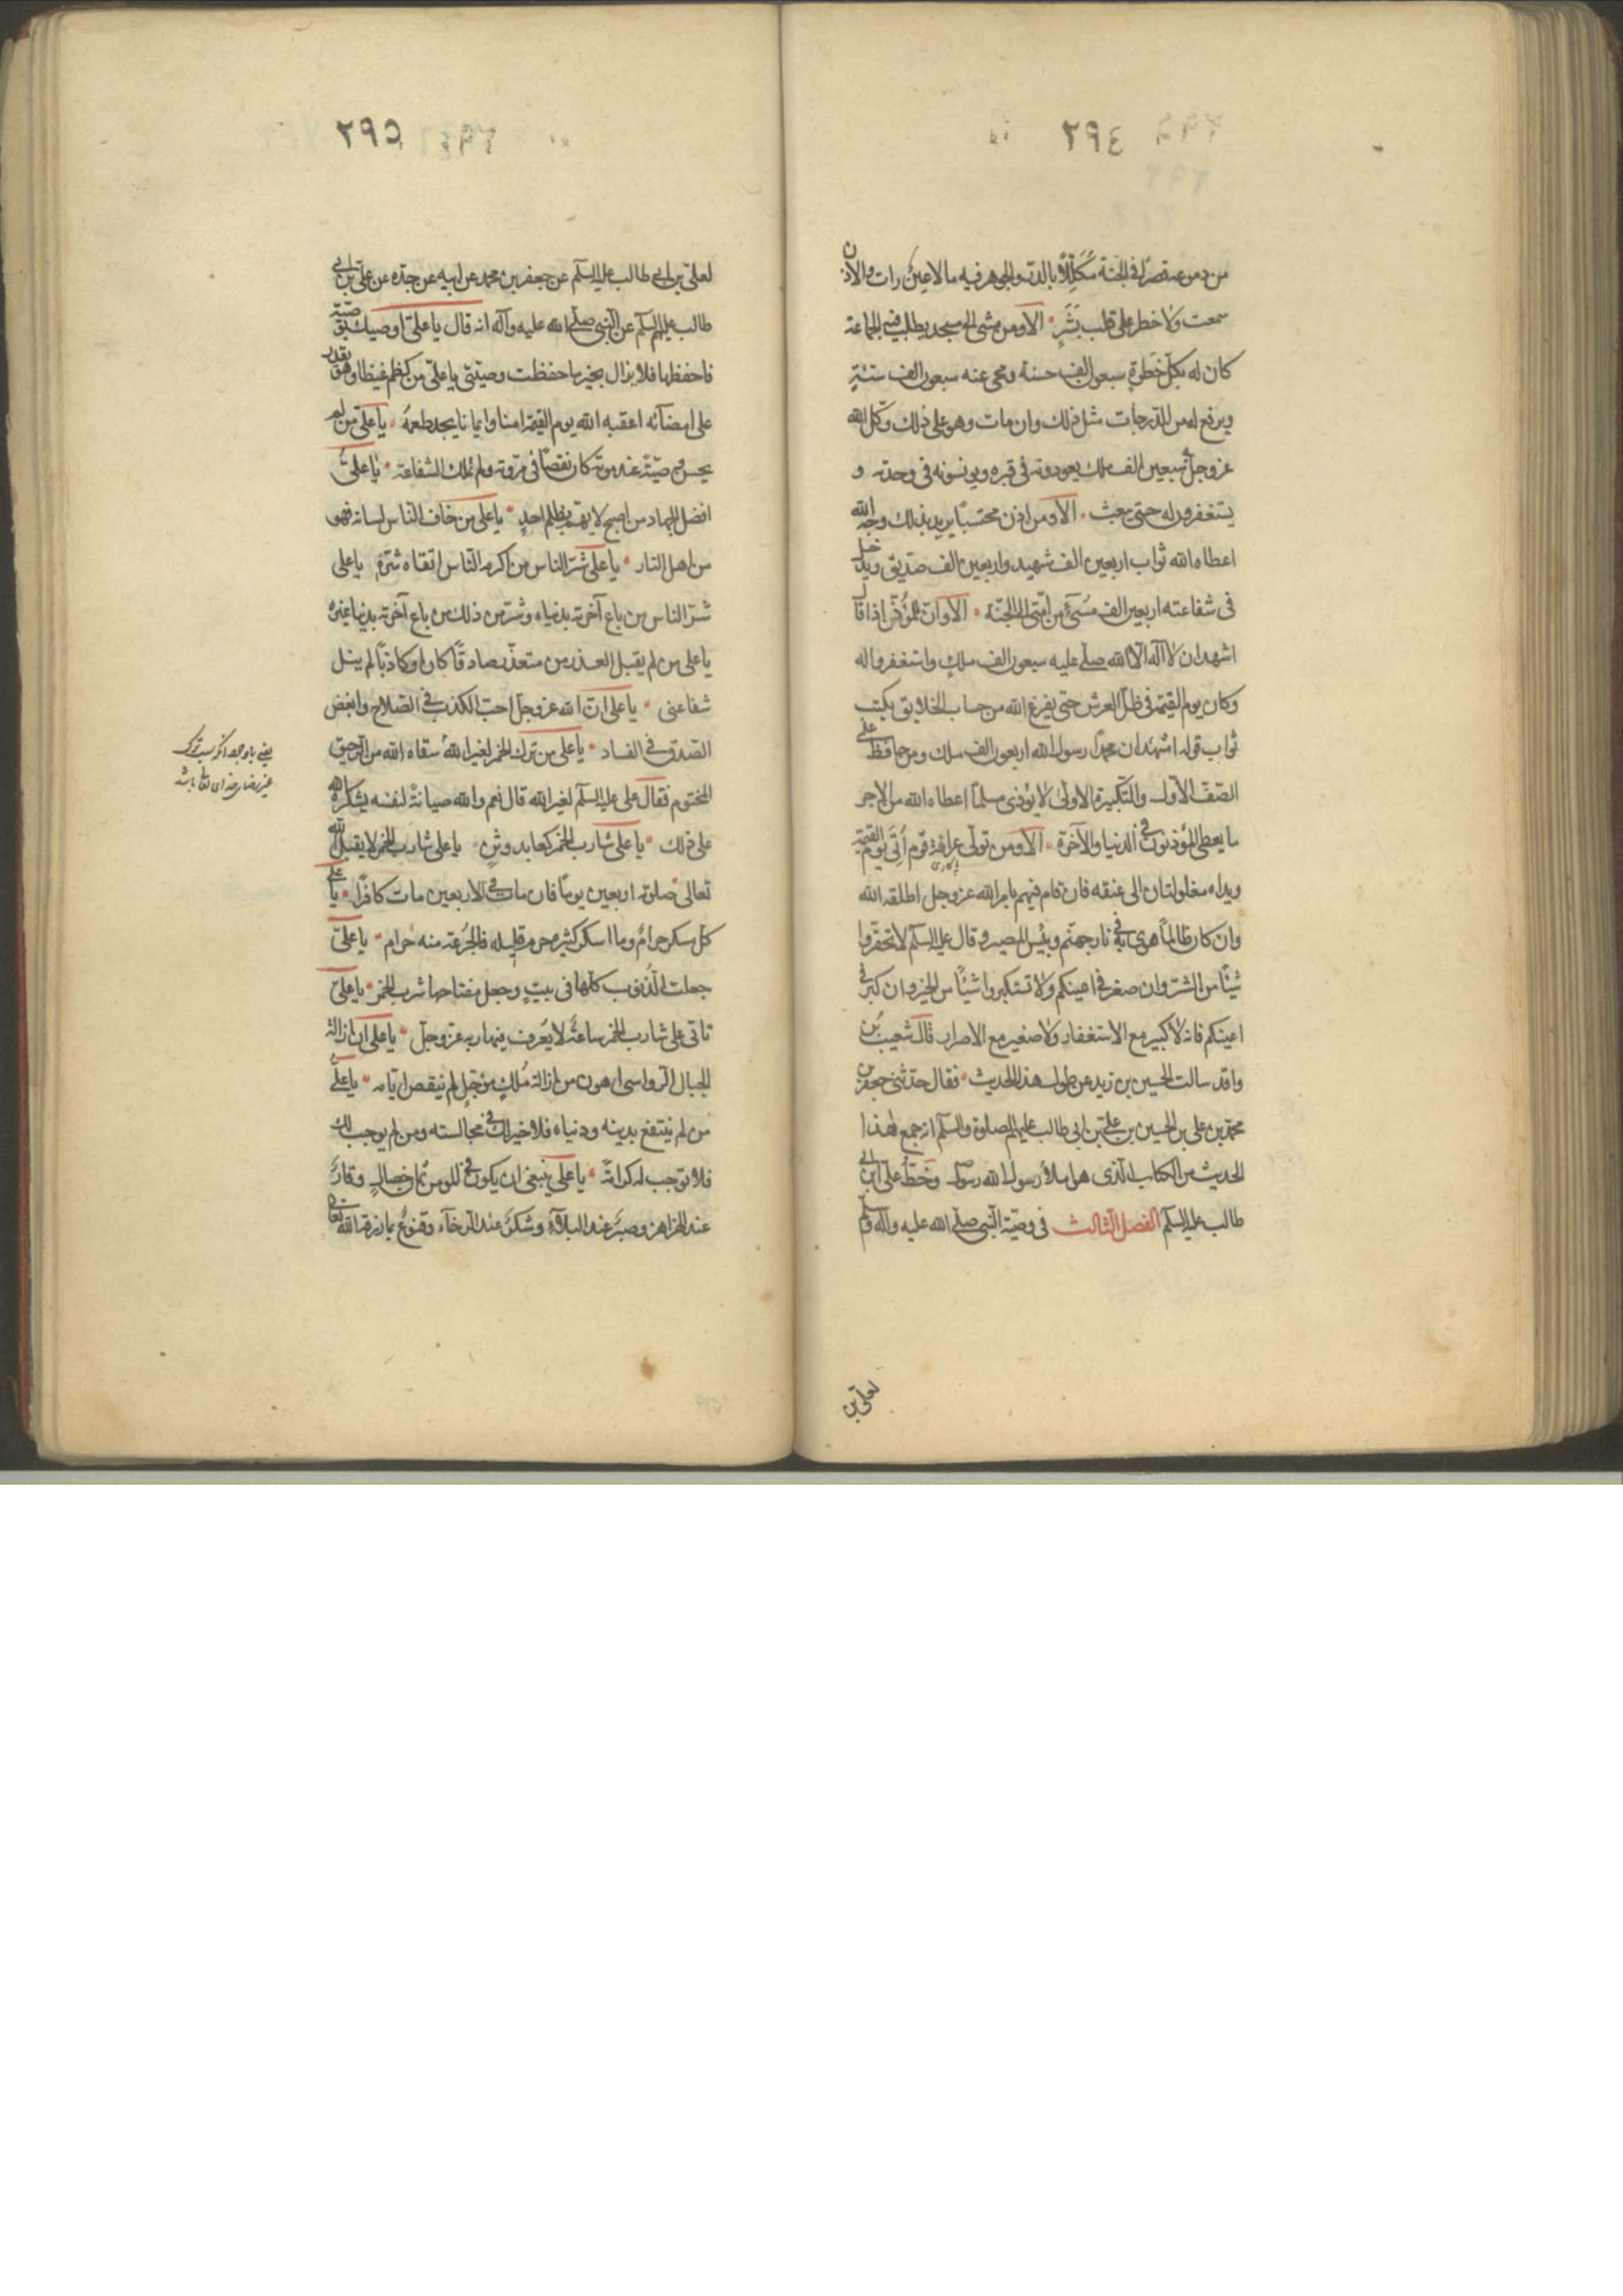 ٢٩٤
من دموعه قصرًا فى الجنة مُكَلّلًا بالدّر والجوهر فيه مالا عينٌ رات ولا اذن
سمعت ولا خطر على قلب بَشَرٍ الا ومن مشى الى مسجد يطلب فيه الجماعة
كان له بكلّ خَطوةٍ سبعون الف حسنة ومحى عنه سبعون الف سيّئةٍ
ويرفع له من الدّرجات مثل ذلك وان مات وهو على ذلك وكّل الله
عز وجلّ به سبعين الف ملك يعودونه فى قبره ويونسونه فى وحدته و
يستغفرون له حتى يبعث الا ومن اذن محتسبًا يريد بذلك وجه الله
اعطاه الله ثواب اربعين الف شهيد واربعين الف صدّيق ويدخل
فى شفاعته اربعين الف مُسِیءٍ من امّتى الى الجنّة الا وانّ المؤذّن اذا قال
اشهد ان لا اله الّا الله صلّى عليه سبعون الف ملكٍ واستغفروا له
وكان يوم القيٰمة فى ظلّ العرش حتى يفرغ الله من حساب الخلايق ويكتب
ثواب قوله اشهد ان محمدًا رسول الله اربعون الف ملك ومن حافظ على
الصّفّ الاول والتّكبيرة الاولىٰ لا يؤذى مسلمًا اعطاه الله من الاجر
ما يعطى المؤذنون فى الدنيا والآخرة الا ومن تولّى عرافة قوم اُتِىَ يوم القيٰمة
ويداه مغلولتان الى عنقه فان قام فيهم بامر الله عز وجل اطلقه الله
وان كان ظالمًا هوى به فى نار جهنّم وبئس المصير وقال عليه السلم لا تحقّروا
شيئًا من الشّر وان صغر فى اعينكم ولا تستكبروا شيئًا من الخير وان كبر فى
اعينكم فانه لا كبير مع الاستغفار ولا صغير مع الاصرار قال شعيب بن
واقد سالت الحسين بن زيد عن طول هذا الحديث فقال حدّثنى جعفر بن
محمّد بن على بن الحسين بن على بن ابى طالب عليهم الصلوة والسلم انه جمع هٰذا
الحديث من الكتاب الذى هو املاء رسول الله وخطّ على ابن ابى
طالب عليه السلم الفصل الثالث فى وصيّة النّبى صلّى الله عليه وآله وسلم
لعلى بن
٢٩٥
لعلى بن ابى طالب عليه السلم عن جعفر بن محمد عن ابيه عن جدّه عن على بن ابى
طالب عليهم السلم عن النّبى صلّى الله عليه وآله انه قال يا علىّ اوصيك بوصيّة
فاحفظها فلا يزال بخير ما حفظت وصيّتى يا علىّ من كظم غيظا وهو يقدر
على امضآئه اعقبه الله يوم القيٰمة امنا وايمانا يجد طعمهُ يا على من لم
يحسن وصيّتهُ عند موته كان نقصًا فى مروته ولم يملك الشفاعة يا علىُّ
افضل الجهاد من اصبح لا يهمّ بظلم احدٍ يا على من خاف الناس لسانه فهو
من اهل النار يا على شرّ الناس من اكرمه النّاس اتقاء شرّه يا على
شرّ الناس من باع آخرته بدنياه وشرّ من ذلك من باع آخرته بدنيا غيره
يا على من لم يقبل العذر من متعذّر صادقًا كان او كاذبًا لم ينل
شفاعتى يا على انّ الله عز وجل احبّ الكذب فى الصّلاح وابغض
الصّدق فى الفساد يا على من ترك الخمر لغير اللهِ سقاه الله من الرحيق
المختوم فقال على عليه السلم لغير الله قال نعم والله صيانةً لنفسه يشكره الله
على ذلك يا على شارب الخمر كعابد وثنٍ يا على شارب الخمر لا يقبل الله
تعالى صلوته اربعين يومًا فان مات فى الاربعين مات كافرًا يا على
كل مسكر حرامٌ وما اسكر كثيره فالجُرعة منه حرام يا علىّ
جعلت الذّنوب كلّها فى بيتٍ وجعل مفتاحها شرب الخمر يا علىّ
تاتى على شارب الخمر ساعةٌ لا يَعرف فيها ربه عزّ وجلّ يا على ان ازالة
الجبال الرّواسى اهون من ازالة مُلكٍ مؤجّلٍ لم تنقص ايّامه يا علىُّ
من لم ينتفع بدينه ودنياه فلا خير لك فى مجالسته ومن لم يوجب لك
فلا توجب له كرامةً يا على ينبغى ان يكون فى المومن ثمان خصالٍ وقارٌ
عند الهزاهز وصبرٌ عند البلآءِ وشكرٌ عند الرخآء وقنوعٌ بما رزقه الله تعالى